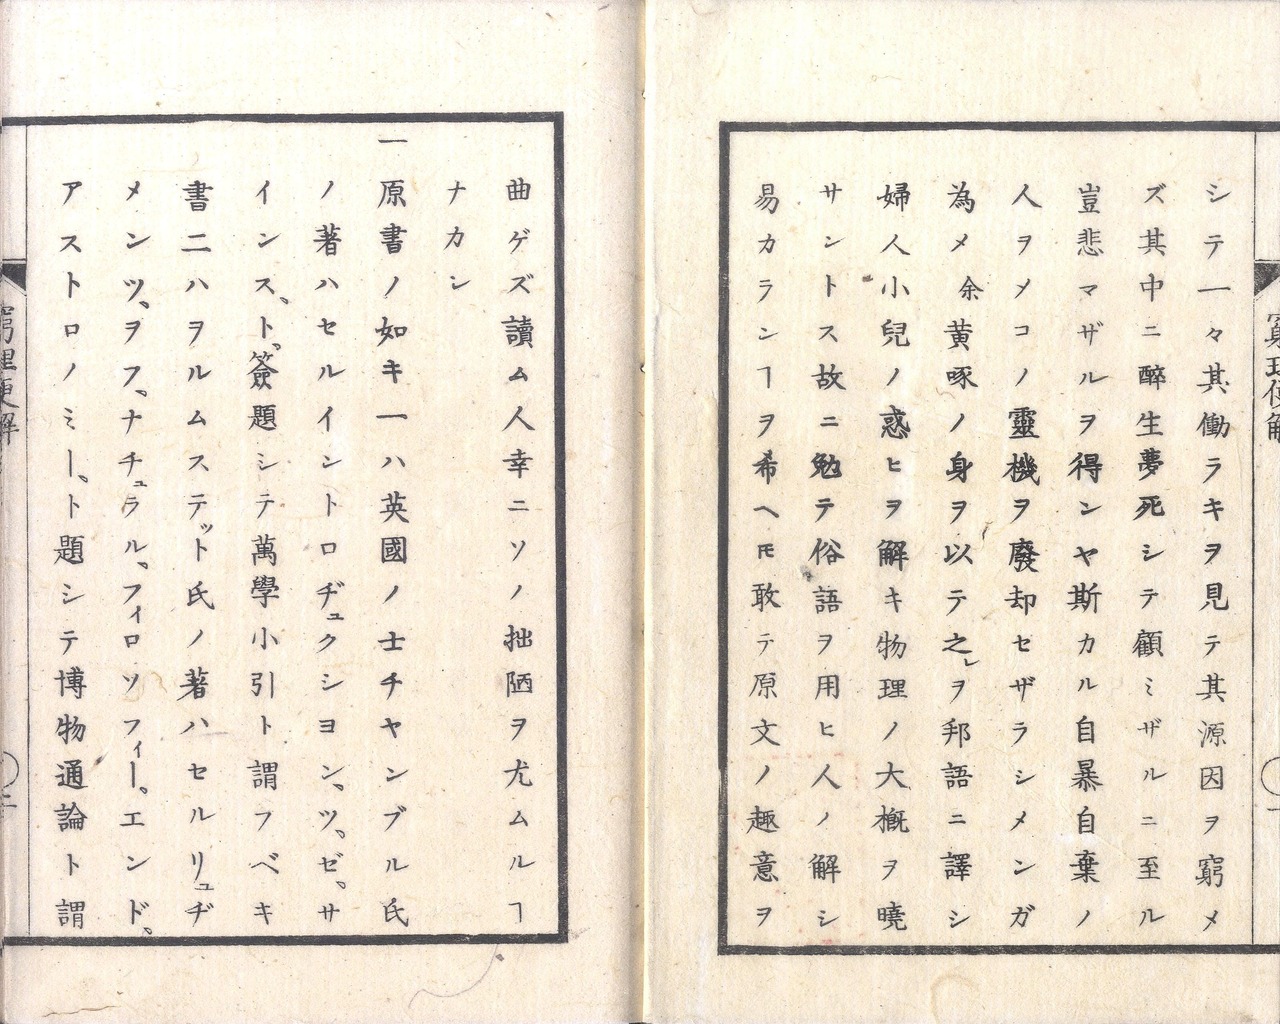 シテ一々其働ラキヲ見テ其源因ヲ窮メ
ズ其中ニ醉生夢死シテ顧ミザルニ至ル
豈悲マザルヲ得ンヤ斯カル自暴自棄ノ
人ヲメコノ靈機ヲ廢却セザラシメンガ
為メ余黄啄ノ身ヲ以テ之レヲ邦語ニ譯シ
婦人小兒ノ惑ヒヲ解キ物理ノ大概ヲ曉
サントス故ニ勉テ俗語ヲ用ヒ人ノ解シ
易カランヿヲ希ヘ𪜈敢テ原文ノ趣意ヲ
曲ゲズ讀ム人幸ニソノ拙陋ヲ尤ムルヿ
ナカレ
一原書ノ如キ一ハ英國ノ士チヤンブル氏
ノ著ハセルイントロヂュクシヨン、ツ、ゼ、サ
インス、ト、簽題シテ萬學小引ト謂フベキ
書二ハヲルムステット氏ノ著ハセルリュヂ
メンツ、ヲフ、ナチュラル、フィロソフィー、エンド、
アストロノミー、ト題シテ博物通論ト謂